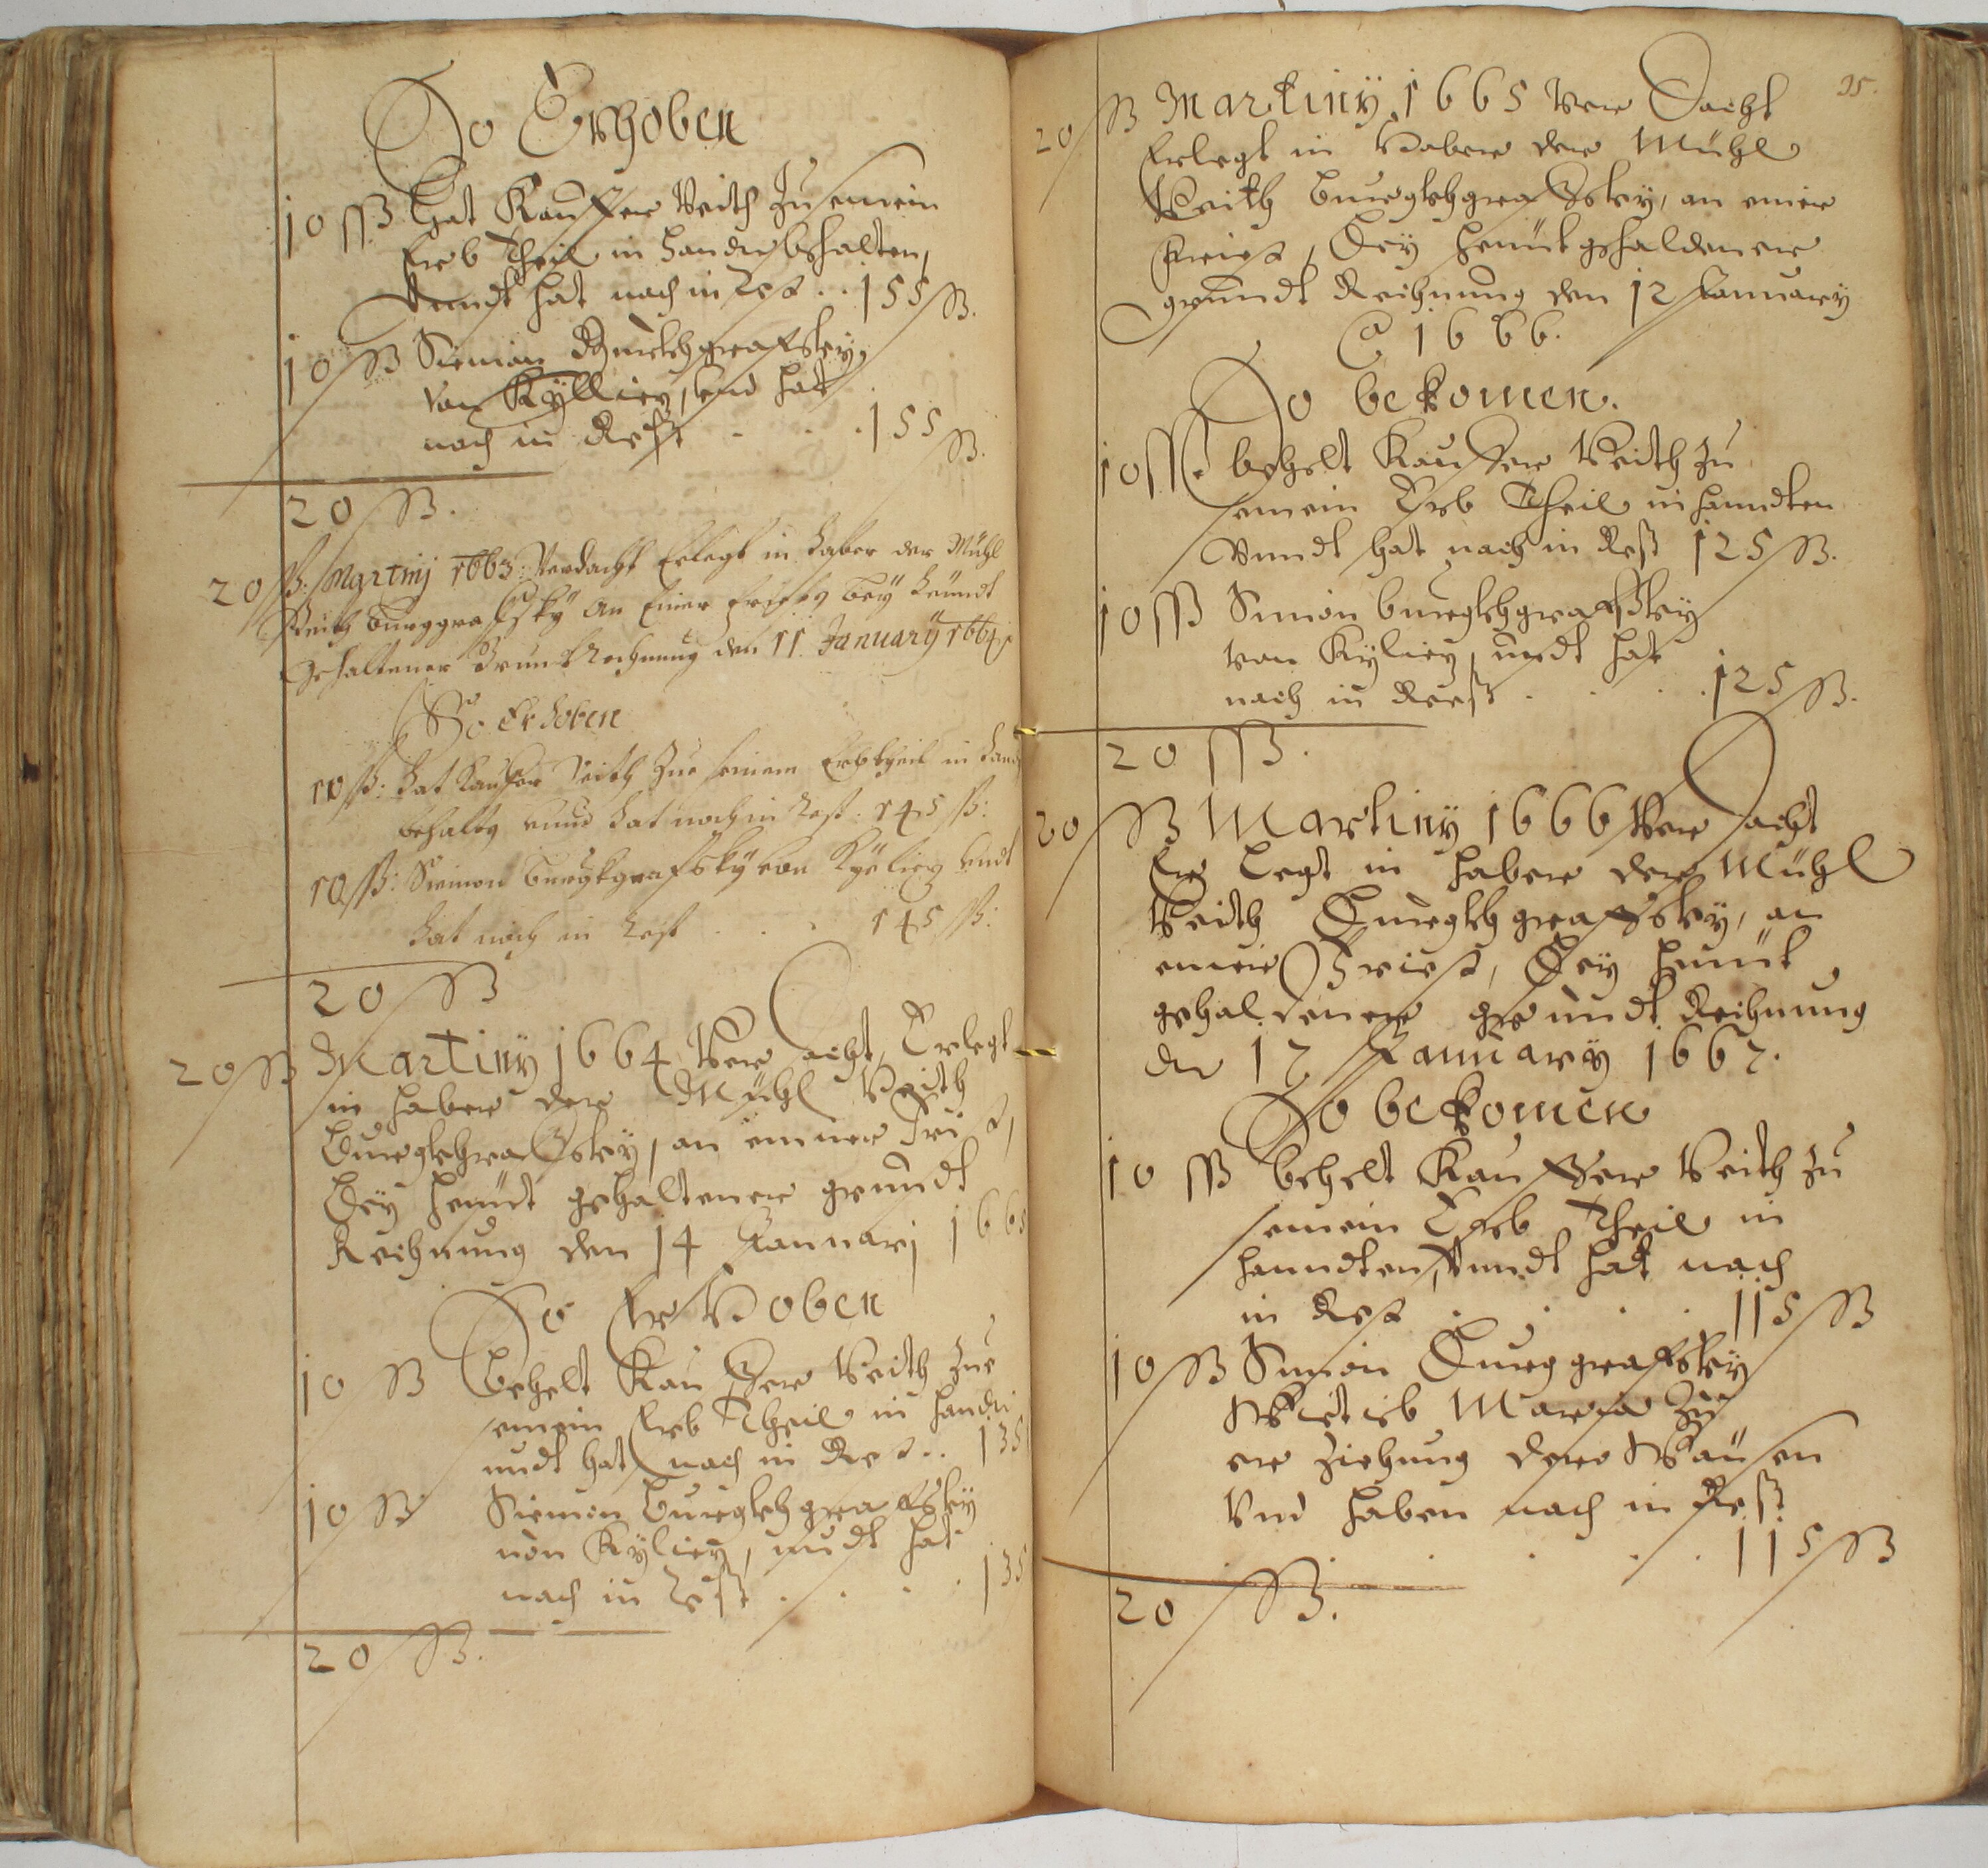 So Erhoben
10 ß Hat Kauffer Veith zu seinem
Erb Theil in handen behalten,
Vundt hat noch in Rest .. 155 ß.
10 ß Siemon Burckhgrafsky
von Kylliey, und hat
noch in Rest . . . 155 ß.
20 ß.
20 ß: Martinj 1663: Verdacht Erlegt in haber der Mühl
Veith Burggrafsky an Einer bey heundt
Gehaltener Grundt Rechnung den 11. January 1664
So Erhoben
10 ß: hat Kauffer Veith zue seinem Erbtheil in hand
behalten vnnd hat noch in Rest: 145 ß:
10 ß: Siemon Burgkgrafsky von Kyeliey vndt
hat noch in Rest . . . 145 ß:
20 ß
20 ß Martiny 1664 Ver dacht, Erlegt
in haber der Mühl Veith
Burgkhgrafsky, an einner Fris t,
Bey heundt gehaltener grundt
Rechnung den 14 Januarj 1665
So Er Hoben
10 ß Behelt Kauffer Veith zue
seinem Erb Theil in handen
undt hat noch in Rest .. 135
10 ß Siemon Burgkhgrafsky
von Kyliey, undt hat
noch in Rest . . . . 135
20 ß.
35.
20 ß Martiny 1665 Ver Dacht
Erlegt in Haber der Mühl
Veith burgkhgrafsky, an einer
Friest, Bey heundt gehaldener
grundt Rechnung den 12 January
A 1666.
So bekomen.
10 ß. behelt Kauffer Veith zu
seinem Erb Theil in handten
Vnndt hat noch in Rest 125 ß.
10 ß Simon burgkhgrafsky
von Kyliey, undt hat
noch in Reest . . . . 125 ß.
20 ß.
20 ß Martiny 1666 Ver Dacht
Er Legt in haber der Mühl
Veith Burgkhgrafsky, an
einer Friest, Bey heundt
gehaldener grundt Rechnung
de 12 January 1667.
So bekomen
10 ß behelt Kauffer Veith zu
seinem Erb Theil in
handten, Vundt hat noch
in Rest . . . . 115 ß
10 ß Simon Burggrafsky
Wietieb Maria zu
er ziehung der Waüsen
Vnd haben noch in Rest
. . . 115 ß
20 ß.